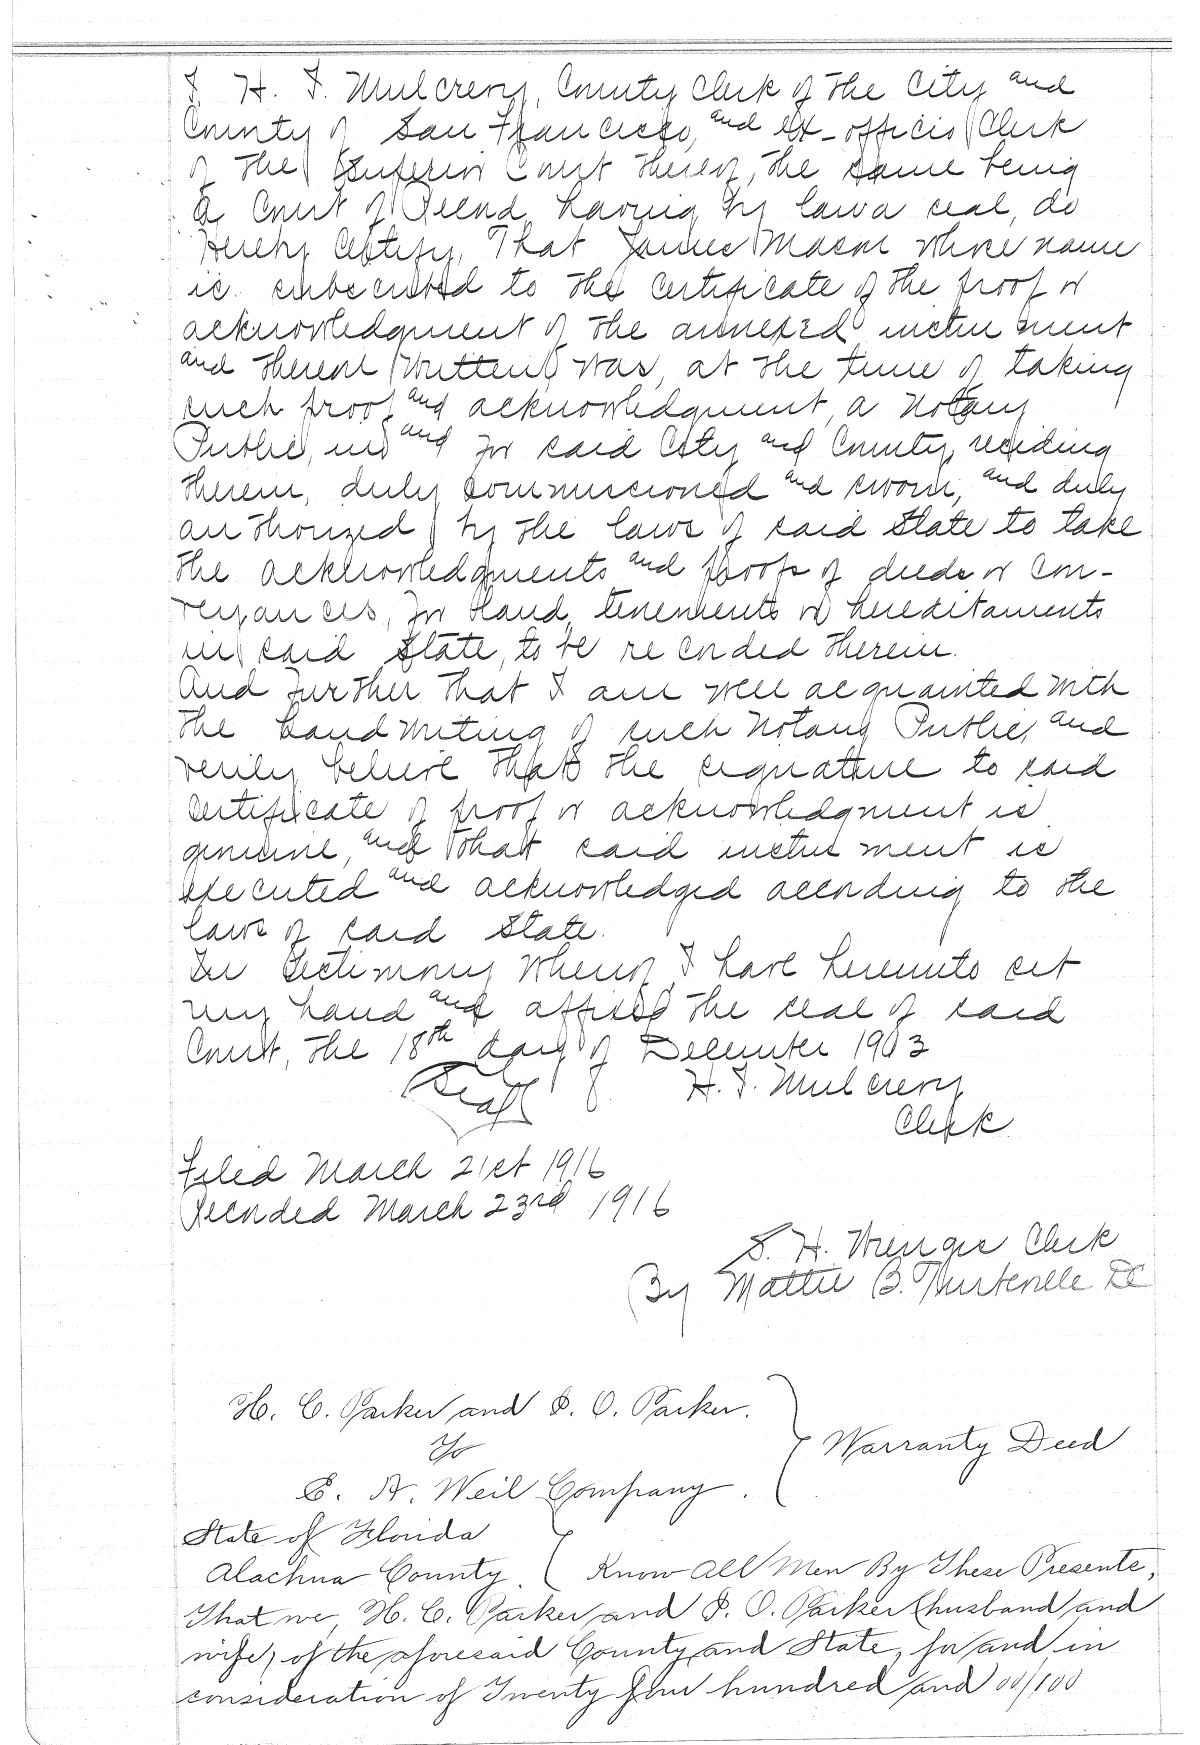 I H. I. Mulcrevy, County Clerk of the City and
County of San Francisco, and ex-officio Clerk
of the Superior Court thereof, the same being
a Court of Record, having by law a seal, do
hereby certify, That James Mason whose name
is subscribed to the certificate of the proof or
acknowledgment of the annexed instrument
and thereon written was, at the time of taking
such proof and acknowledgment, a Notary
Public, in and for said City and County, residing
therein, duly commissioned and sworn, and duly
authorized by the laws of said State to take
the acknowledgments and proofs of deeds or con-
veyances, for land, tenements or hereditaments
in said State, to be recorded therein.
And further that I am well acquainted with
the handwriting of such Notary Public, and
verily believe that the signature to said
certificate of proof or acknowledgment is
genuine, and that said instrument is
executed and acknowledged according to the
laws of said State.
In testimony whereof, I have hereunto set
my hand and affixed the seal of said
Court, the 18th day of December 1903
Seal H. I. Mulcrevy
Clerk
Filed March 21st 1916
Recorded March 23rd 1916
S. H. Wienges Clerk
By Mattie B. DC
H. C. Parker and I. O. Parker.
To
Warranty Deed
E. A. Weil Company.
State of Florida
Alachua County. Know All Men By These Presents,
That we, H. C. Parker and I. O. Parker (husband and
wife) of the aforesaid County and State, for and in
consideration of Twenty four hundred and 00/100